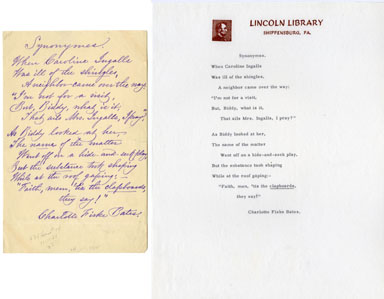 Synonymes.
When Caroline Ingalls
Was ill of the shingles,
A neighbor came over the way;
"I'm not for a visit,
But, Biddy, what is it,
That ails Mrs. Ingalls, I pray?"
As Biddy looked at her,
The name of the matter
Went off on a hide-and-seek play,
But the substance took shaping
While at the roof gaping;—
"Faith, mem, 'tis the clapboards,
they say!"
Charlotte Fiske Bates.
LINCOLN LIBRARY
SHIPPENSBURG, PA.
Synonymes.
When Caroline Ingalls
Was ill of the shingles,
A neighbor came over the way;
"I'm not for a visit,
But, Biddy, what is it,
That ails Mrs. Ingalls, I pray?"
As Biddy looked at her,
The name of the matter
Went off on a hide-and-seek play,
But the substance took shaping
While at the roof gaping:-
"Faith, mem, 'tis the clapboards,
they say!"
Charlotte Fiske Bates.